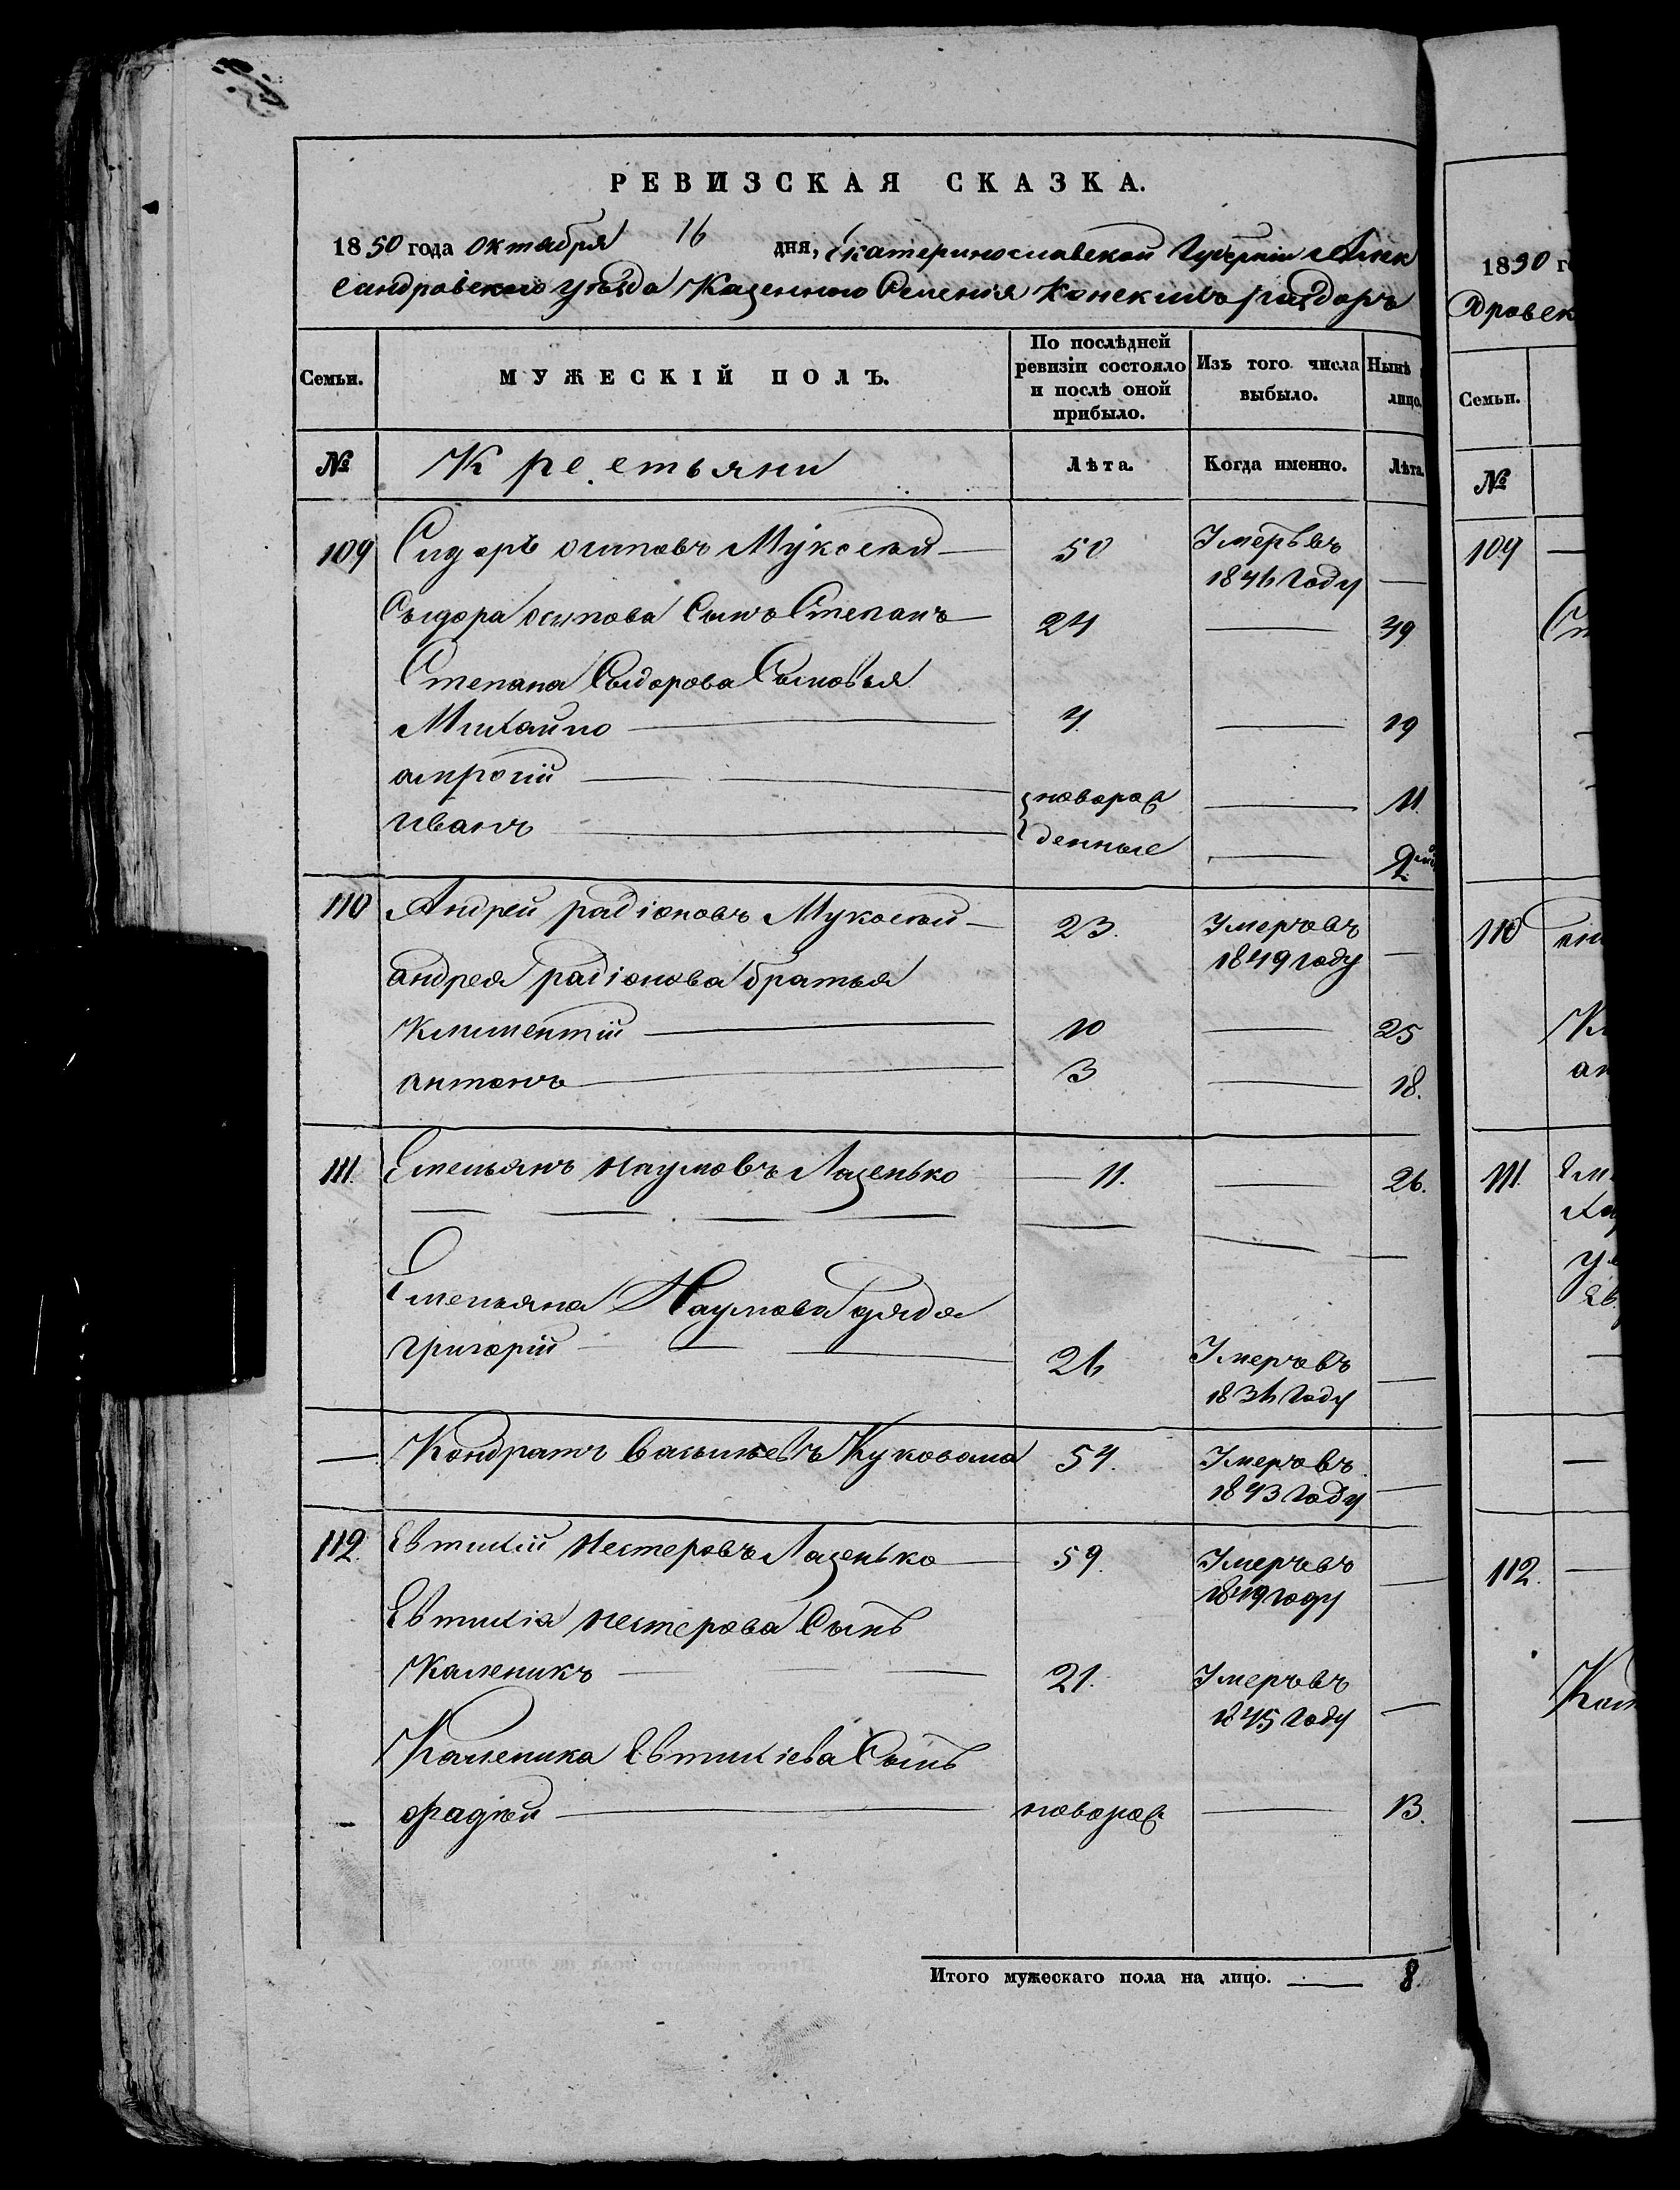 РЕВИЗСКАЯ СКАЗКА.
1850 года октября 16 дня, Екатеринославской Губерніи Алек
сандровского уезда Казенного Селенія Конскихъ раздоръ
Семьи. МУЖЕСКІЙ ПОЛЪ. По послѣдней ревизіи состояло и послѣ оной прибыло. Изъ того числа выбыло. Нынѣ лицо.
№ Крестьяни Лѣта. Когда именно. Лѣта.
109 Сидоръ осиповъ Мукосѣй — 50 Умеръ въ
1846 Году —
Сыдора осипова Сынъ Степанъ — 24 — 39
Степана Сыдорова Сыновья
Михайло — 4 — 19
амросій — новорож — 11.
Иванъ — денные —
110 Андрей радіоновъ Мукосѣй — 23. Умеръ въ
1849 году —
андрея радіонова братья
Климентій — 10 — 25
антонъ — 3 — 18.
111. Емельянъ наумовъ Лазенько — 11. — 26.
Емельяна Наумова дядя
григорій — 26 Умеръ въ
1836 Году —
— Кондратъ васильевъ Куковала 54. Умеръ въ
1843 Году —
112. Евтихій нестеровъ Лазенько — 59. Умеръ въ
1849 году —
Евтихія нестерова Сынъ
Каленикъ — 21. Умеръ въ
1845 Году —
Каленика Евтихіева Сынъ
фадѣй — новорож — 13.
Итого мужескаго пола на лицо. — 8.
1850 г
дровск
Семьи.
№
109
110
111.
112.